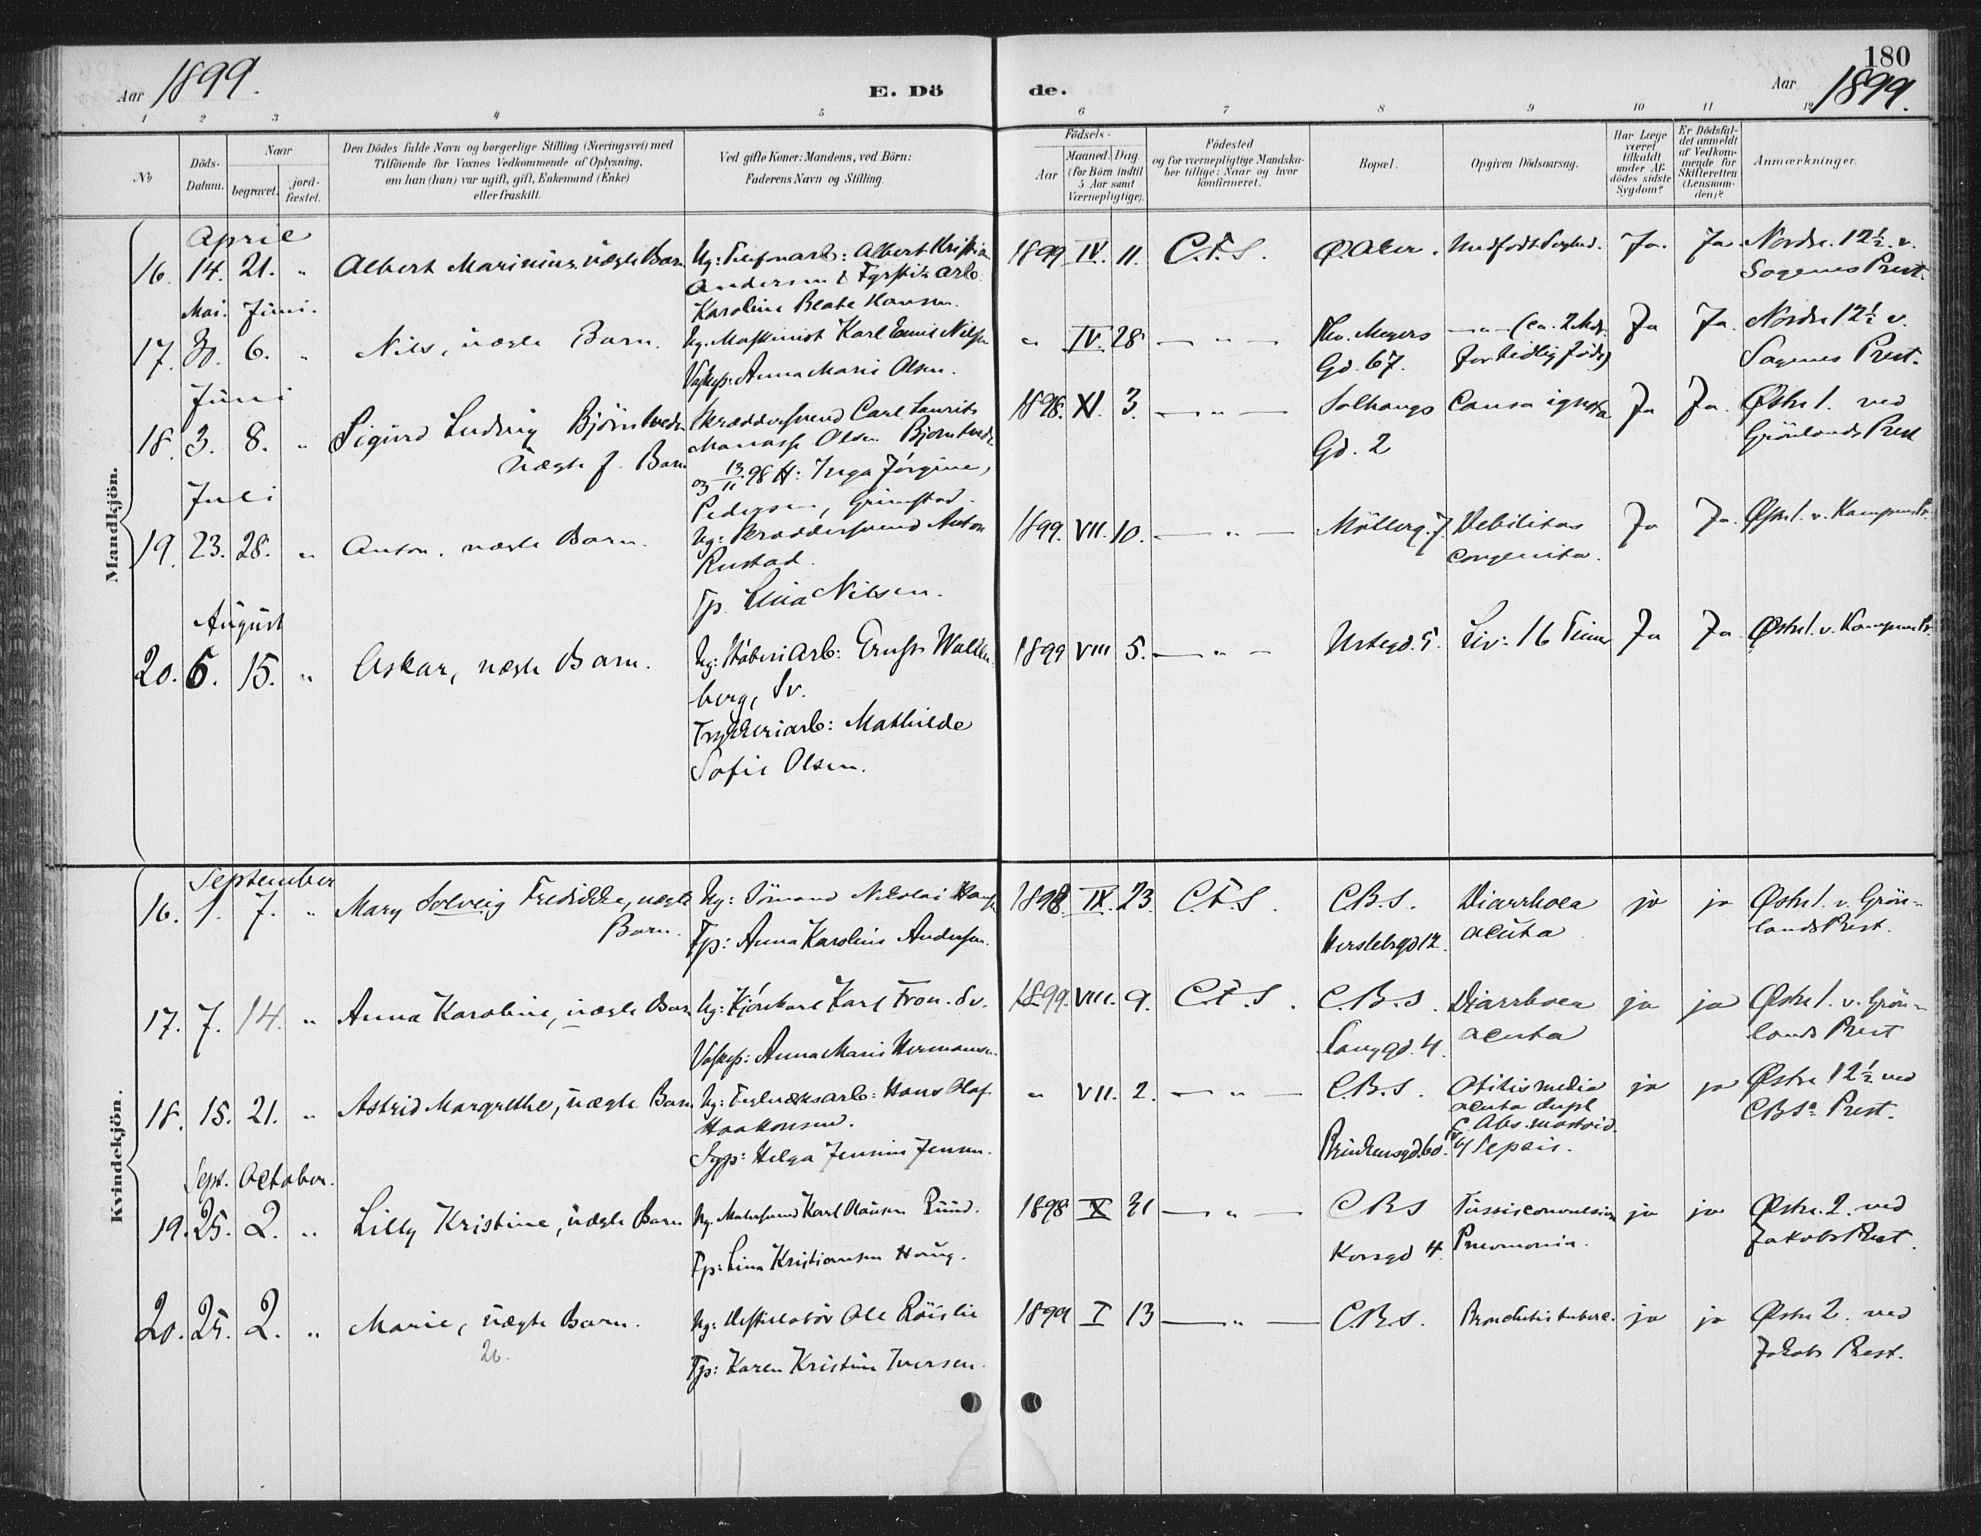 180
Aar 1899.
E. Döde.
Aar 1899.
1 2 3 4 5 6 7 8 9 10 11 12
No
Döds-Datum.
Naar
begravet.
jord-fæstet.
Den Dödes fulde Navn og borgerlige Stilling (Næringsvei) med
Tilföiende for Voxnes Vedkommende af Oplysning,
om han (hun) var ugift, gift, Enkemand (Enke)
eller fraskilt.
Ved gifte Koner: Mandens, ved Börn:
Faderens Navn og Stilling.
Födsels-
Aar
Maaned. Dag
(for Börn indtil
5 Aar samt
Værnepligtige).
Födested
og for værnepligtige Mandska-
ber tillige: Naar og hvor
konfirmeret.
Bopæl.
Opgiven Dödsaarsag.
Har Læge
været
tilkaldt
under Af-
dödes sidste
Sygdom?
Er Dödsfal-
det anmeldt
af Vedkom-
mende for
Skifteretten
(Lensman-
den)?
Anmærkninger.
Mandkjön.
April
16. 14. 21. " Albert Marinius uægte Barn
Ug: Telefonarb: Albert Kristian
Andersen & Fyrstikarb.
Karoline Beate Hansen.
1899 IV. 11. C.F.S. Ø. Aker. Medfødt Svaghed. Ja. Ja Nordre 12½ v.
Sagenes Prest.
Mai. Juni.
17. 30. 6. " Nils, uægte Barn.
Ug. Maskinist Karl Emil Nilsen
Vaskep: Anna Marie Olsen.
" IV. 28 — " — Thv. Meyers
Gd. 67.
— " — (ca. 2 Mdr.
for tidlig født)
Ja Ja. Nordre 12½ v.
Sagenes Prest.
Juni
18. 3. 8. " Sigurd Ludvig Bjørntvedt
uægte f. Barn
Skræddersvend Carl Laurits
Manasse Olsen Bjørntvedt
og 13/11 98 H: Inga Jørgine,
Pedersen, Grimstad.
1898. XI. 3. — " — Solhaugs
Gd. 2
Causa ignota Ja Ja. Østre 1. ved
Grönlands Prest
Juli
19. 23. 28. " Anton, uægte Barn.
Ug: Skræddersvend Anton
Rustad.
Tp. Lina Nilsen.
1899. VII. 10. — " — Möllerg. 7. Debilitas
congenita.
Ja Ja. Østre 1. v. Kampens Pr.
August
20. 6. 15. " Oskar, uægte Barn.
Ug: Støberiarb: Ernst Walden-
berg, Sv.
Trykkeriarb: Mathilde
Sofie Olsen.
1899 VIII 5. — " — Urtegd 5. Liv: 16 Timer Ja Ja. Østre 1. v. Kampens Pr.
Kvindekjön.
September
16. 1. 7. " Mary Solveig Fredrikke, uægte
Barn.
Ug: Sömand Nikolai Hansen
Tp: Anna Karoline Andersen.
1898. IX. 23. C.F.S. C.B.S.
Herslebsgd 12.
Diarrhoea
acuta
ja ja Østre 1. v. Grön-
lands Prest.
17. 7. 14. " Anna Karoline, uægte Barn
Ug: Kjørekarl Karl Tron. Sv.
Vaskep: Anna Marie Hermansen.
1899. VIII. 9. C.F.S. C.B.S.
Langgd. 4.
Diarrhoea
acuta
ja ja Østre 1. v. Grön-
lands Prest
18. 15. 21. " Astrid Margrethe, uægte Barn
Ug: Teglværksarb: Hans Olaf
Haakonsen.
Syp: Helga Jensine Jensen.
" VII. 2. — " — C.B.S.
Brinkensgd. 60.
Otitis media
acuta dupl
c. Abs. mastoid.
Sepsis.
ja ja Østre 12½ ved
CBSs Prest.
Sept. October.
19. 25. 2. " Lilly Kristine, uægte Barn
Ug. Malersvend Karl Hansen Ruud.
Tp: Lina Kristiansen Haug.
1898 X 31 — " — C.B.S
Korsgd 4.
Tussis convulsiva
Pneumonia.
ja ja Østre. 2. ved
Jakobs Prest.
20. 25. 2. " Marie, uægte Barn.
26.
Ug: Destilatör Ole Röislie
Tp: Karen Kristine Iversen.
1899 I 13 — " — C.B.S. Bronchitis tuberc. ja ja Østre 2. ved
Jakobs Prest.